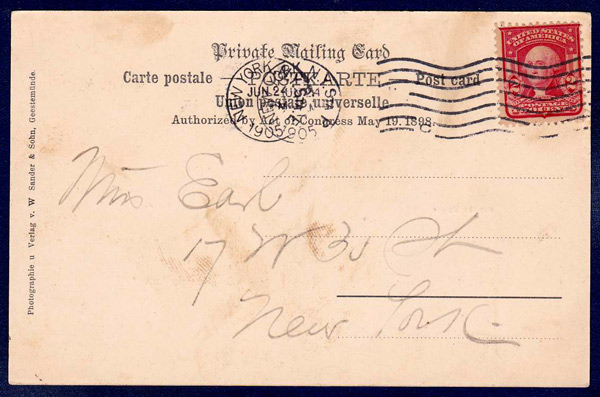 Private Mailing Card
Carte postale — POSTKARTE — Post card
Union postale universelle
Authorized by Act of Congress May 19. 1898.
NEW YORK, N.Y.
JUN 24
1905
UNITED STATES OF AMERICA
POSTAGE
Miss Earl
17 W 30 St
New York.
Photographie u Verlag v. W Sander & Sohn, Geestemünde.